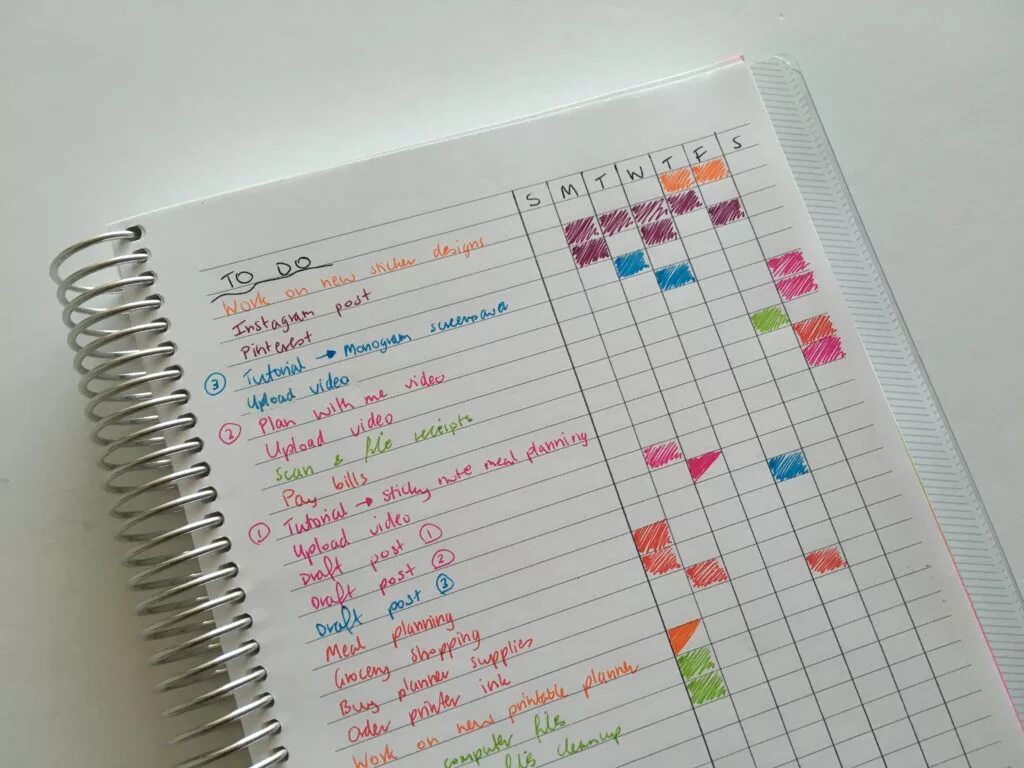 S M T W T F S
TO DO
Work on new sticker designs
Instagram post
Pinterest
③ Tutorial → Monogram screensaver
Upload video
② Plan with me video
Upload video
Scan & file receipts
Pay bills
① Tutorial → sticky note meal planning
Upload video
Draft post ①
Draft post ②
Draft post ③
Meal planning
Grocery shopping
Buy planner supplies
Order printer ink
Work on new printable planner
computer files
files cleanup